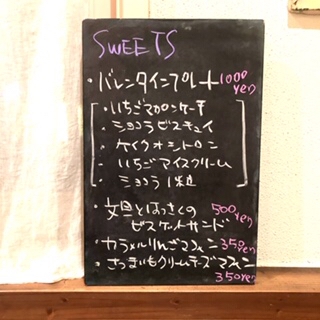 SWEETS
・バレンタインプレート 1000yen
・いちごマカロンケーキ
・ショコラビスキュイ
・ケイクオシトロン
・いちごアイスクリーム
・ショコラ1粒
・文旦とはっさくの
ビスケットサンド 500yen
・カラメルりんごマフィン 350yen
・さつまいもクリームチーズマフィン
350yen